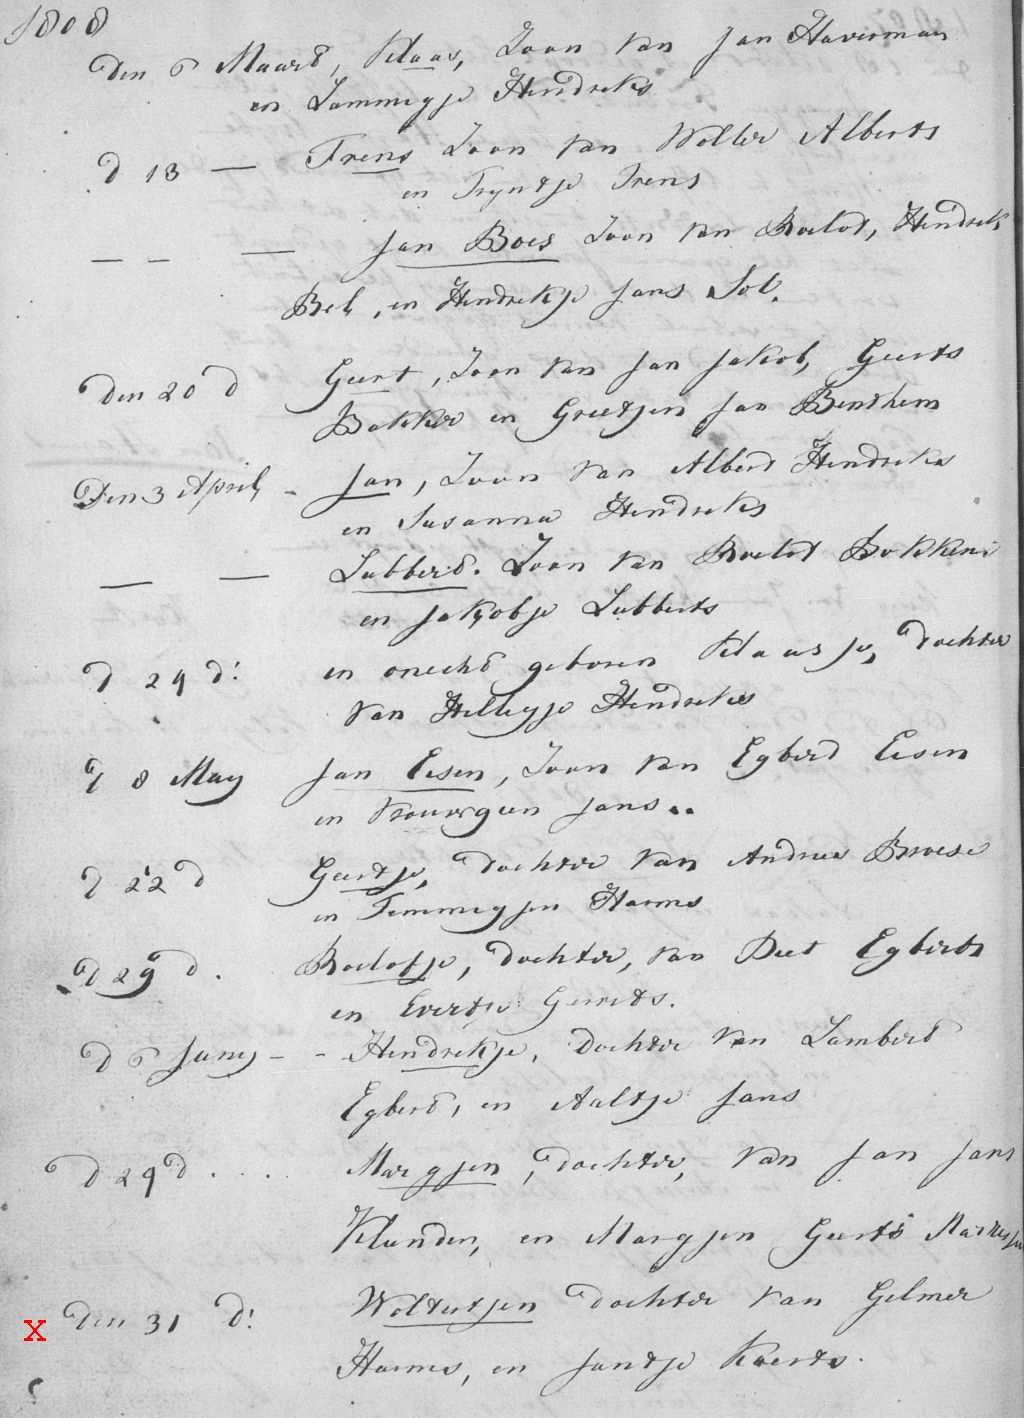 1808
Den 6 Maard, Klaas, Zoon van Jan Haverman
en Lammegje Hendreks
d 13 — Frens Zoon van Wolter Alberts
en Tryntje Frens
— — — Jan Boes Zoon van Roelof, Hendrek
Bel, en Hendrekje Jans Sol.
Den 20 d Geert, Zoon van Jan Jakob, Geerts
Bakker en Greetjen Jan Benthem
Den 3 April - Jan, Zoon van Alberd Hendreks
en Susanna Hendreks
— — Lubberd. Zoon van Roelof Bakkeni
en Jakobje Lubberts
d 24 d: en onechd geboren Klaasje, dochter
van Hillegje Hendreks
d 8 May Jan Eesen, Zoon van Egberd Eesen
en Vrouwgien Jans..
d 22 d Geertje, dochter van Andries Broese
en Temmegjen Harms
d 29 d. Roelofje, dochter, van Peet Egberts
en Evertje Gerrets.
d 6 Juny - - Hendrekje, dochter van Lamberd
Egberd, en Aaltje Jans
d 29 d . . Margjen, dochter, van Jan Jans
Klunder, en Margjen Geerts
X Den 31 d: Woltertjen dochter van Gelmer
Harms, en Jantje Koerts.